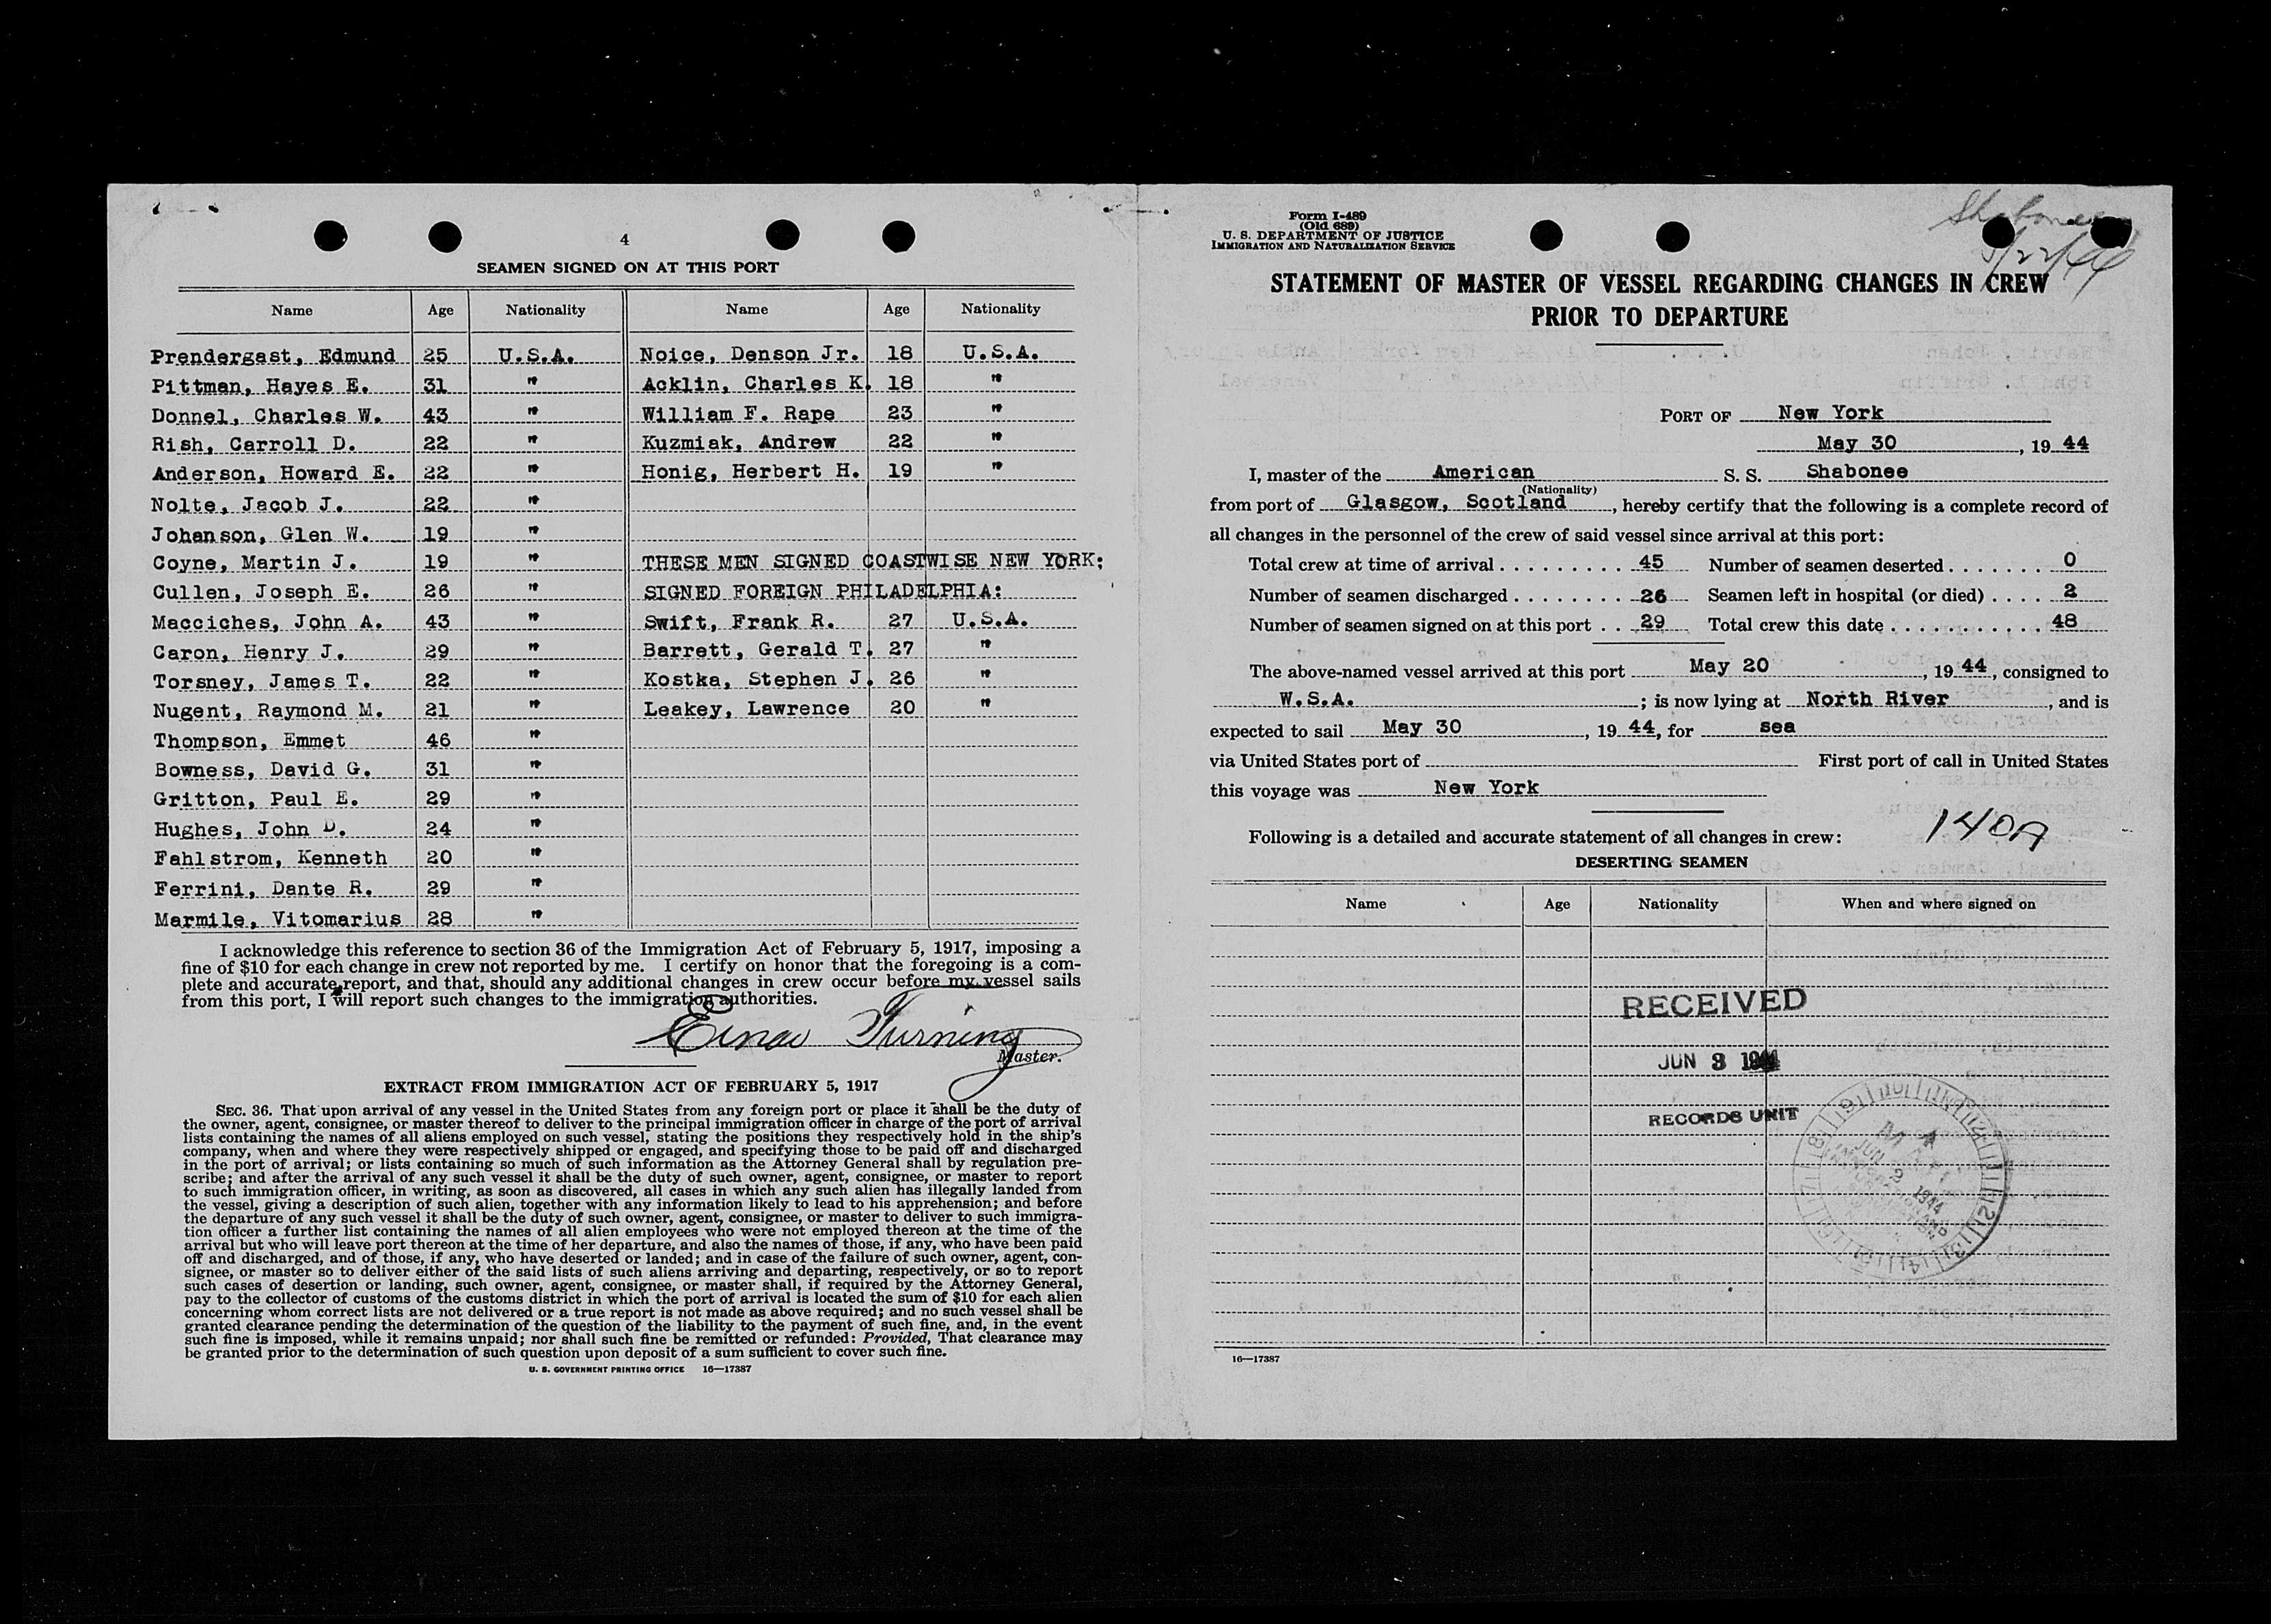 4
SEAMEN SIGNED ON AT THIS PORT
Name Age Nationality Name Age Nationality
Prendergast, Edmund 25 U.S.A. Noice, Denson Jr. 18 U.S.A.
Pittman, Hayes E. 31 " Acklin, Charles K. 18 "
Donnel, Charles W. 43 " William F. Rape 23 "
Rish, Carroll D. 22 " Kuzmiak, Andrew 22 "
Anderson, Howard E. 22 " Honig, Herbert H. 19 "
Nolte, Jacob J. 22 "
Johanson, Glen W. 19 "
Coyne, Martin J. 19 " THESE MEN SIGNED COASTWISE NEW YORK;
Cullen, Joseph E. 26 " SIGNED FOREIGN PHILADELPHIA:
Macciches, John A. 43 " Swift, Frank R. 27 U.S.A.
Caron, Henry J. 29 " Barrett, Gerald T. 27 "
Torsney, James T. 22 " Kostka, Stephen J. 26 "
Nugent, Raymond M. 21 " Leakey, Lawrence 20 "
Thompson, Emmet 46 "
Bowness, David G. 31 "
Gritton, Paul E. 29 "
Hughes, John D. 24 "
Fahlstrom, Kenneth 20 "
Ferrini, Dante R. 29 "
Marmile, Vitomarius 28 "
I acknowledge this reference to section 36 of the Immigration Act of February 5, 1917, imposing a
fine of $10 for each change in crew not reported by me. I certify on honor that the foregoing is a com-
plete and accurate report, and that, should any additional changes in crew occur before my vessel sails
from this port, I will report such changes to the immigration authorities.
Einar Turning
Master.
EXTRACT FROM IMMIGRATION ACT OF FEBRUARY 5, 1917
SEC. 36. That upon arrival of any vessel in the United States from any foreign port or place it shall be the duty of
the owner, agent, consignee, or master thereof to deliver to the principal immigration officer in charge of the port of arrival
lists containing the names of all aliens employed on such vessel, stating the positions they respectively hold in the ship's
company, when and where they were respectively shipped or engaged, and specifying those to be paid off and discharged
in the port of arrival; or lists containing so much of such information as the Attorney General shall by regulation pre-
scribe; and after the arrival of any such vessel it shall be the duty of such owner, agent, consignee, or master to report
to such immigration officer, in writing, as soon as discovered, all cases in which any such alien has illegally landed from
the vessel, giving a description of such alien, together with any information likely to lead to his apprehension; and before
the departure of any such vessel it shall be the duty of such owner, agent, consignee, or master to deliver to such immigra-
tion officer a further list containing the names of all alien employees who were not employed thereon at the time of the
arrival but who will leave port thereon at the time of her departure, and also the names of those, if any, who have been paid
off and discharged, and of those, if any, who have deserted or landed; and in case of the failure of such owner, agent, con-
signee, or master so to deliver either of the said lists of such aliens arriving and departing, respectively, or so to report
such cases of desertion or landing, such owner, agent, consignee, or master shall, if required by the Attorney General,
pay to the collector of customs of the customs district in which the port of arrival is located the sum of $10 for each alien
concerning whom correct lists are not delivered or a true report is not made as above required; and no such vessel shall be
granted clearance pending the determination of the question of the liability to the payment of such fine, and, in the event
such fine is imposed, while it remains unpaid; nor shall such fine be remitted or refunded: Provided, That clearance may
be granted prior to the determination of such question upon deposit of a sum sufficient to cover such fine.
U. S. GOVERNMENT PRINTING OFFICE 16—17387
Form I-489
(Old 689)
U. S. DEPARTMENT OF JUSTICE
IMMIGRATION AND NATURALIZATION SERVICE
Shabonee
5/22/44
STATEMENT OF MASTER OF VESSEL REGARDING CHANGES IN CREW
PRIOR TO DEPARTURE
PORT OF New York
May 30, 1944
I, master of the American S. S. Shabonee
(Nationality)
from port of Glasgow, Scotland, hereby certify that the following is a complete record of
all changes in the personnel of the crew of said vessel since arrival at this port:
Total crew at time of arrival . . . . . . . . . . 45 Number of seamen deserted . . . . . . . 0
Number of seamen discharged . . . . . . . . . 26 Seamen left in hospital (or died) . . . . 2
Number of seamen signed on at this port . . 29 Total crew this date . . . . . . . . . . . 48
The above-named vessel arrived at this port May 20, 1944, consigned to
W.S.A. ; is now lying at North River, and is
expected to sail May 30, 1944, for sea
via United States port of First port of call in United States
this voyage was New York
Following is a detailed and accurate statement of all changes in crew:
140A
DESERTING SEAMEN
Name Age Nationality When and where signed on
RECEIVED
JUN 3 1944
RECORDS UNIT
JUN 3 1944
16—17387